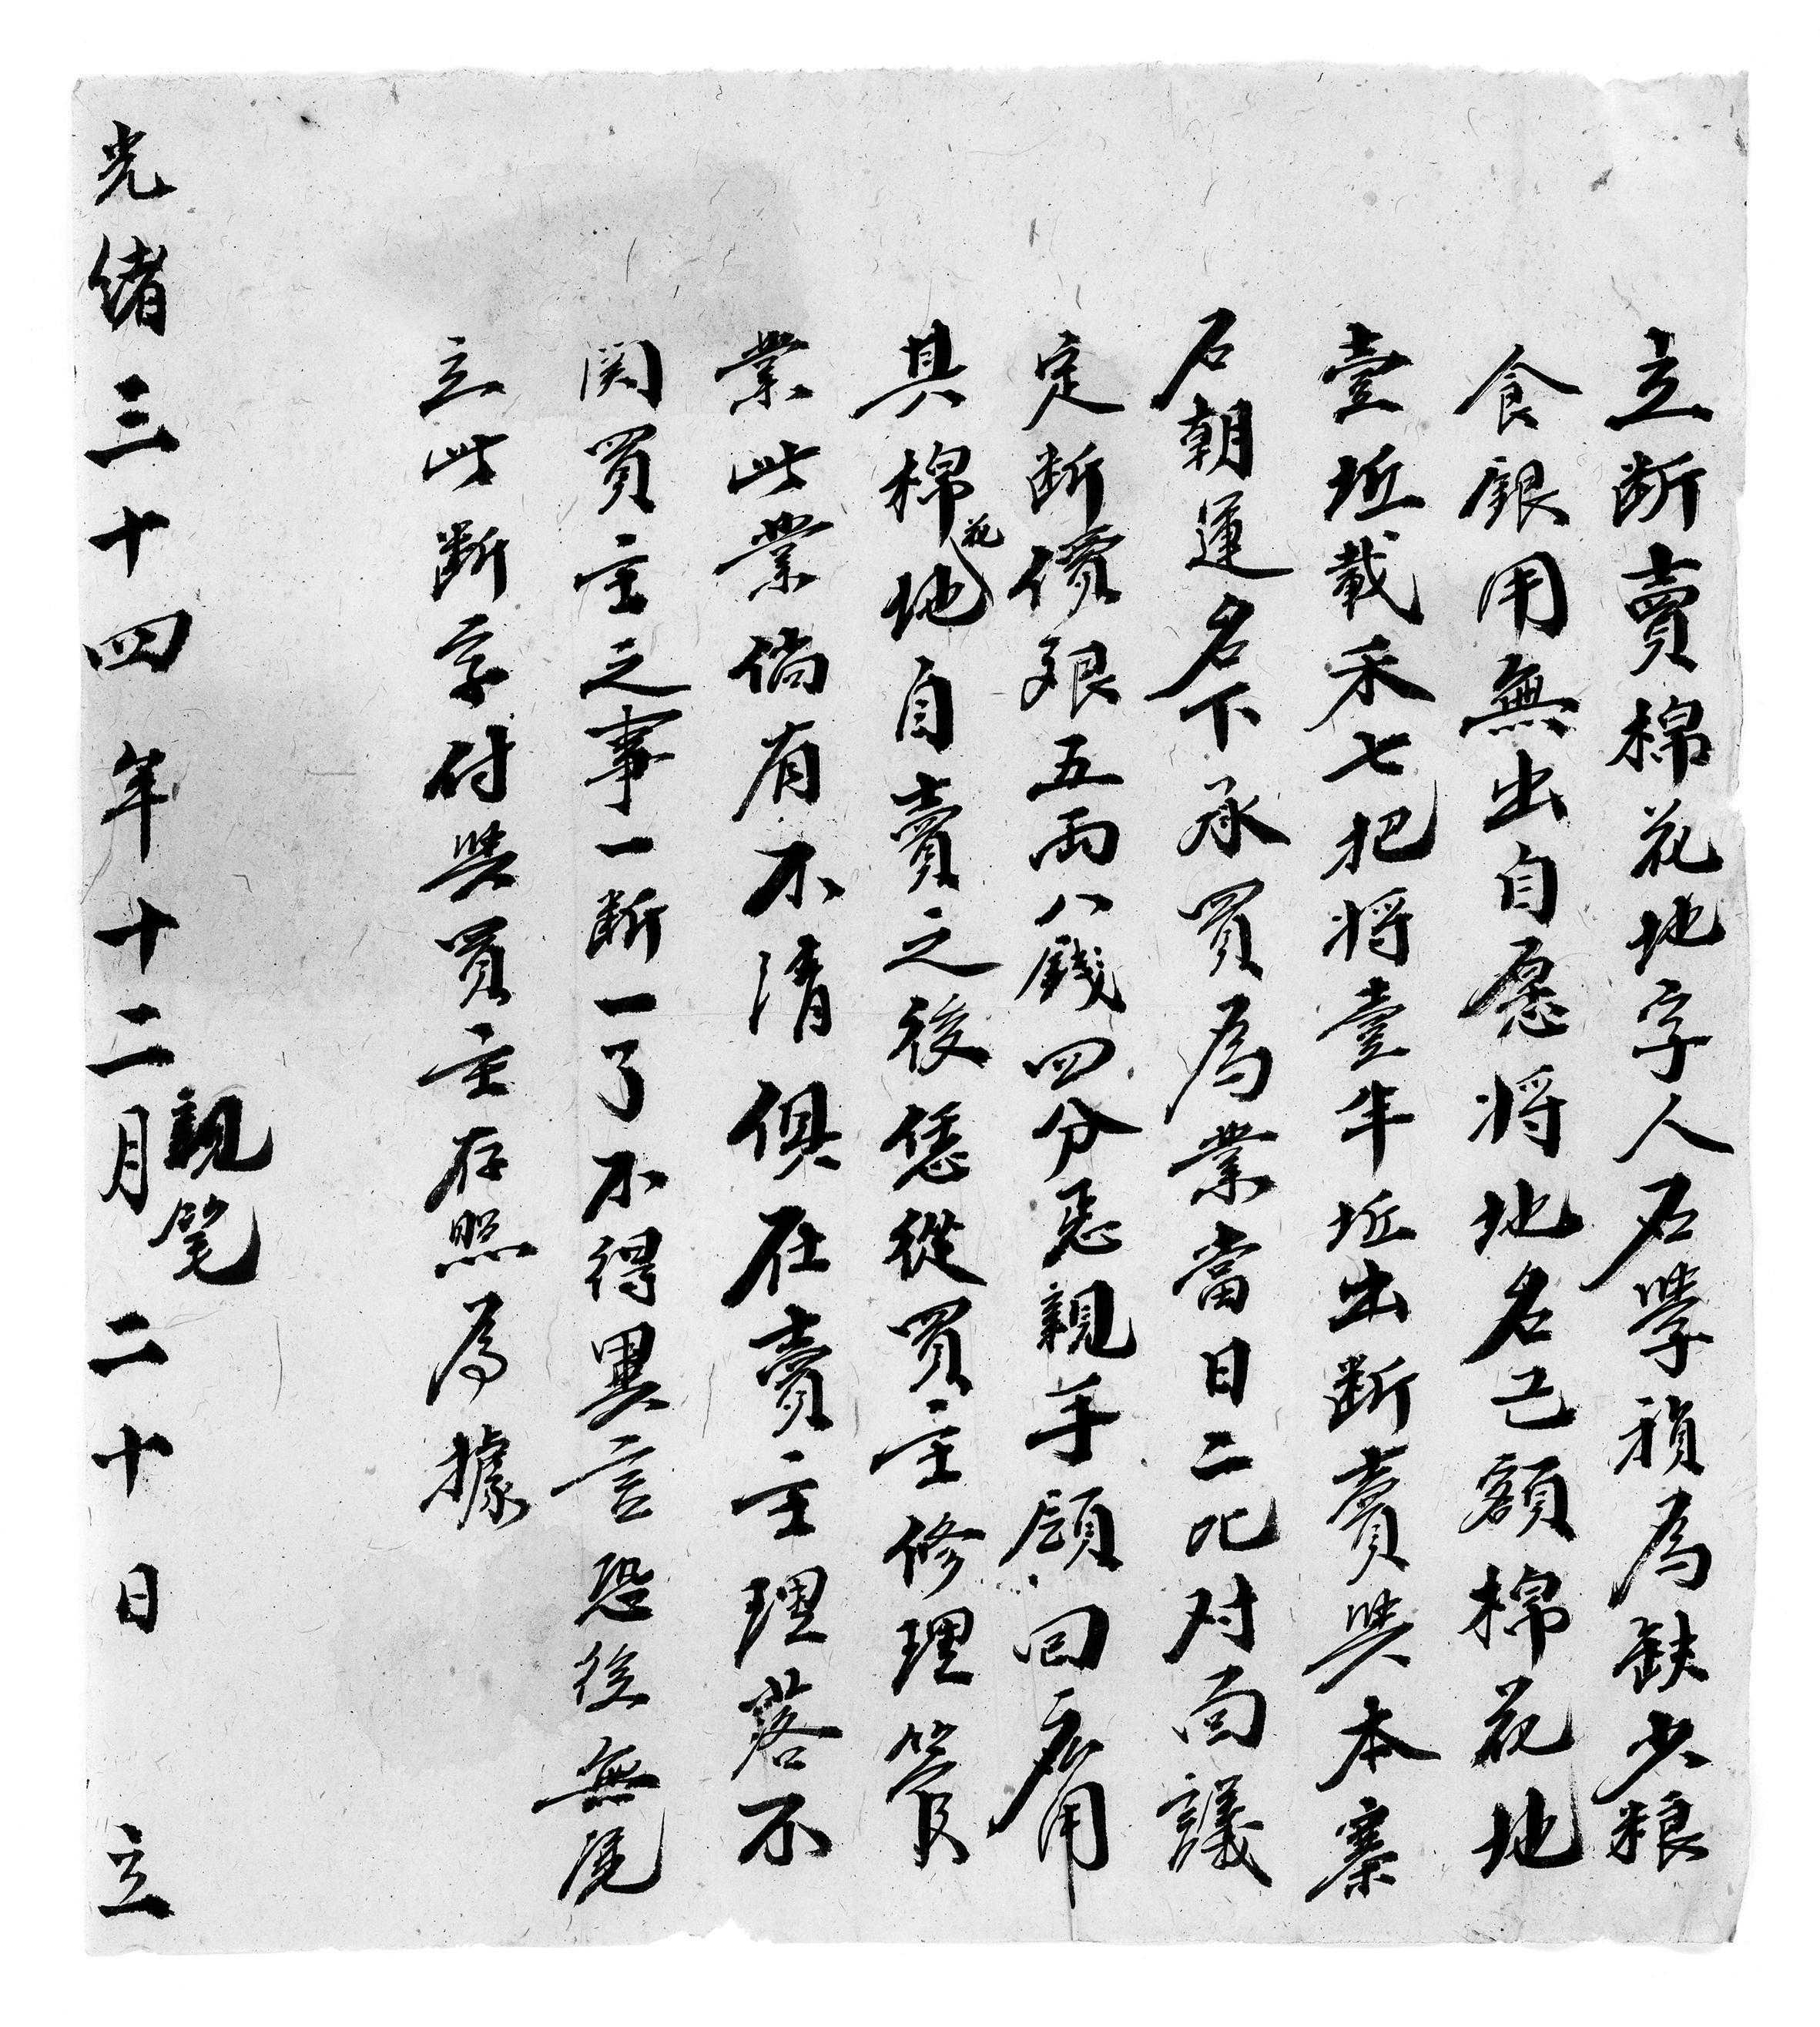 立断賣棉花地字人石學禎為缺少粮
食銀用無出自愿將地名己額棉花地
壹坵載禾七把將壹半坵出断賣與本寨
石朝運名下承買為業當日二比对面議
定断價艮五兩八錢四分悉親手領回应用
其棉花地自賣之後恁從買主修理管
業此業倘有不清俱在賣主理落不
関買主之事一断一了不得異言恐後無凭
立此断字付與買主存照為據
親筆
光緒三十四年十二月二十日 立